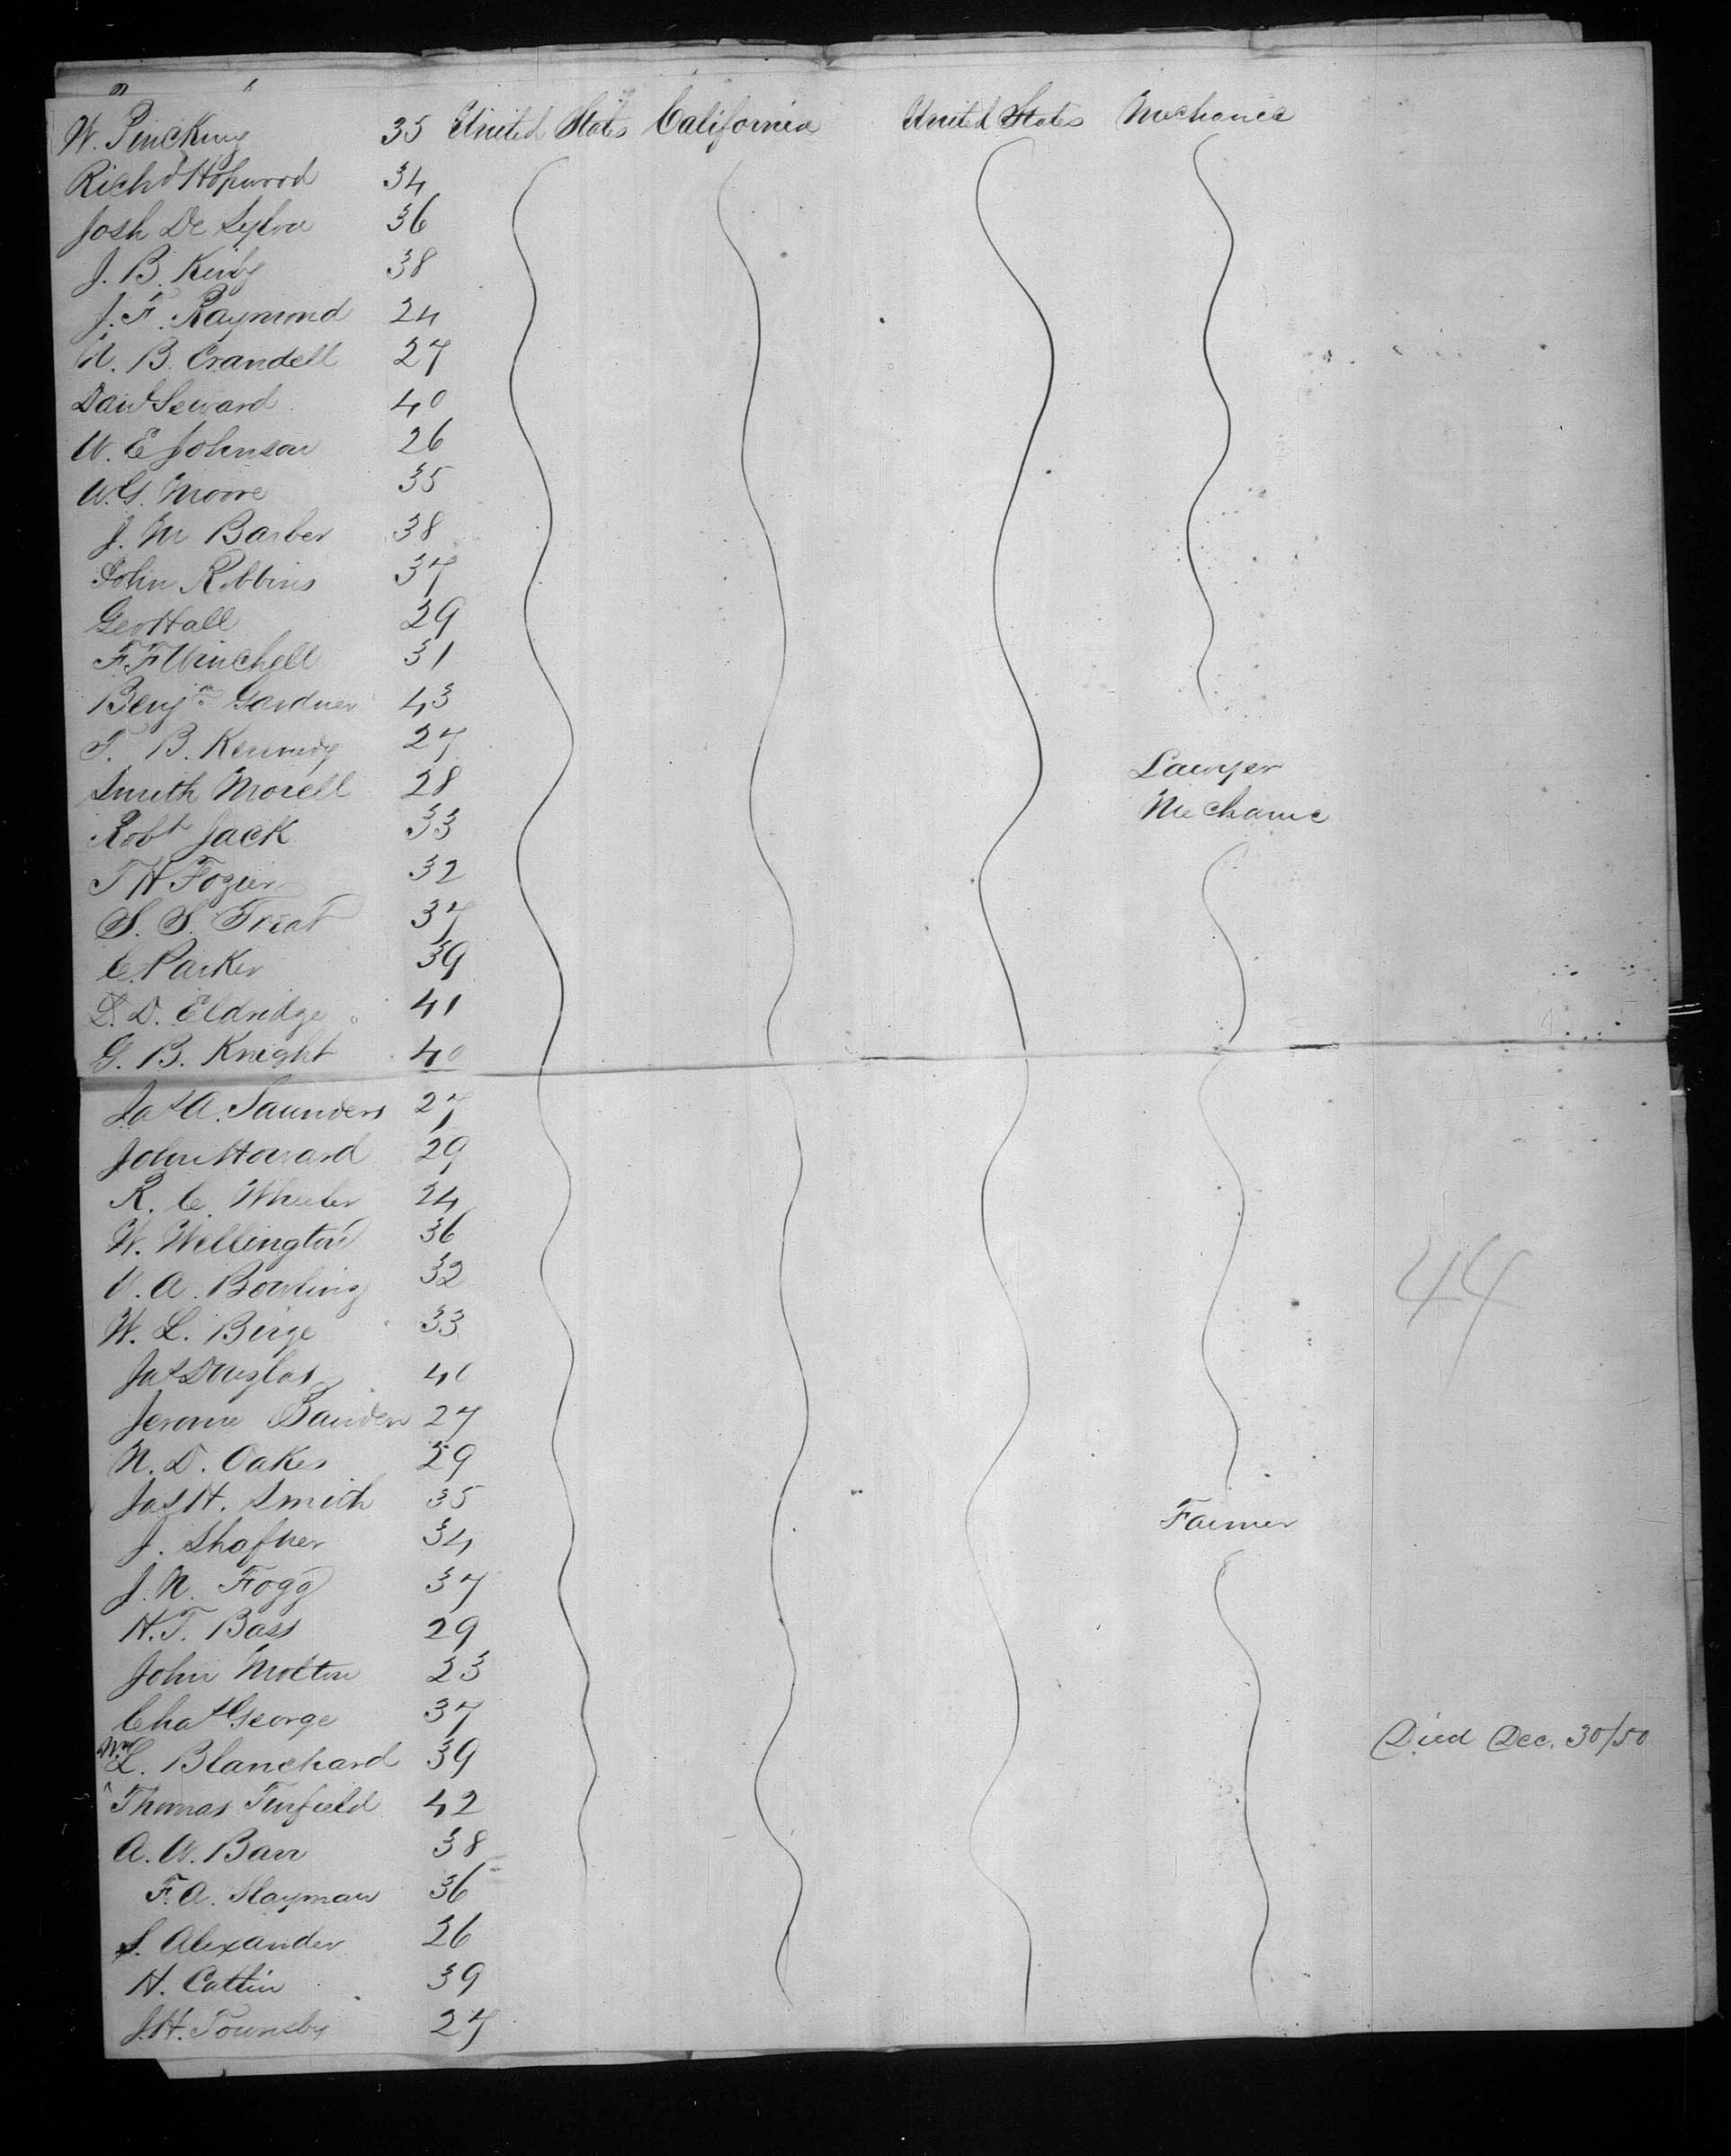 W. Pincking 35 United States California United States Mechanic
Richd Hopwood 34
Josh De Sylva 36
J. B. Kirby 38
J. F. Raymond 24
A. B. Crandell 27
Davd Seward 40
W. E Johnson 26
W. G. Moore 35
J. M Barber 38
John Robbins 37
Geo Hall 29
F. F Winchell 31
Benjn Gardner 43
T. B. Kennedy 27
Smith Morell 28 Lawyer
Robt Jack 33 Mechanic
T H Fozier 32
S. S. Treat 37
C. Parker 39
D. D. Eldridge 41
G. B. Knight 40
Jas A. Saunders 27
John Howard 29
R. C. Wheeler 24
W. Wellington 36
V. A. Bowling 32
W. L. Birge 33
44
Jas Douglas 40
Jerome Bauden 27
N. D. Oakes 29
Jas H. Smith 35
J. Shafner 34 Farmer
J. N. Fogg 37
H. T. Bass 29
John Molton 23
Chas George 37
Wm L. Blanchard 39 Died Dec. 30/50
Thomas Tinfield 42
A. W. Barr 38
F. A. Slayman 36
S. Alexander 26
H. Catlin 39
J. H. Townsby 27